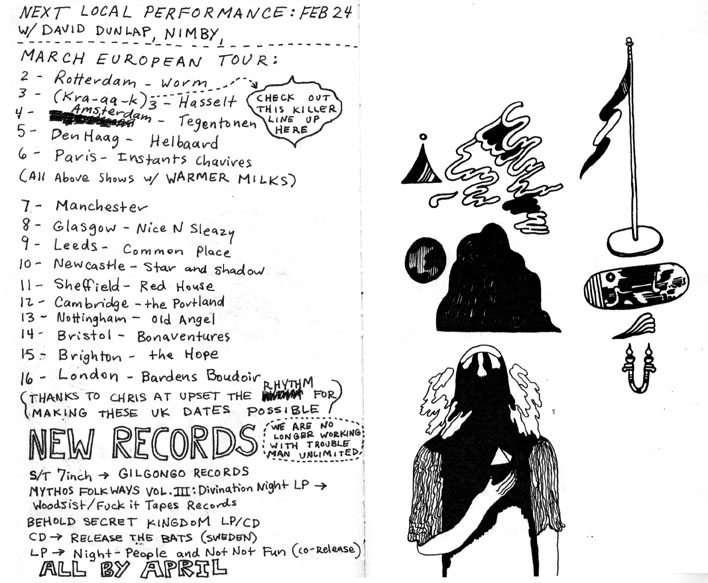 NEXT LOCAL PERFORMANCE: FEB 24
W/ DAVID DUNLAP, NIMBY,
MARCH EUROPEAN TOUR:
2 - Rotterdam - Worm
3 - (Kra-aa-k)3 - Hasselt
4 - Amsterdam - Tegentonen
5 - Den Haag - Helbaard
6 - Paris - Instants Chavires
(All Above Shows w/ WARMER MILKS)
CHECK OUT
THIS KILLER
LINE UP
HERE
7 - Manchester
8 - Glasgow - Nice N Sleazy
9 - Leeds - Common Place
10 - Newcastle - Star and Shadow
11 - Sheffield - Red House
12 - Cambridge - the Portland
13 - Nottingham - Old Angel
14 - Bristol - Bonaventures
15 - Brighton - the Hope
16 - London - Bardens Boudoir
(THANKS TO CHRIS AT UPSET THE RHYTHM FOR
MAKING THESE UK DATES POSSIBLE)
NEW RECORDS
WE ARE NO
LONGER WORKING
WITH TROUBLE
MAN UNLIMITED.
S/T 7inch → GILGONGO RECORDS
MYTHOS FOLKWAYS VOL. III: Divination Night LP →
Woodsist/Fuck it Tapes Records
BEHOLD SECRET KINGDOM LP/CD
CD → RELEASE THE BATS (SWEDEN)
LP → Night-People and Not Not Fun (co-release)
ALL BY APRIL